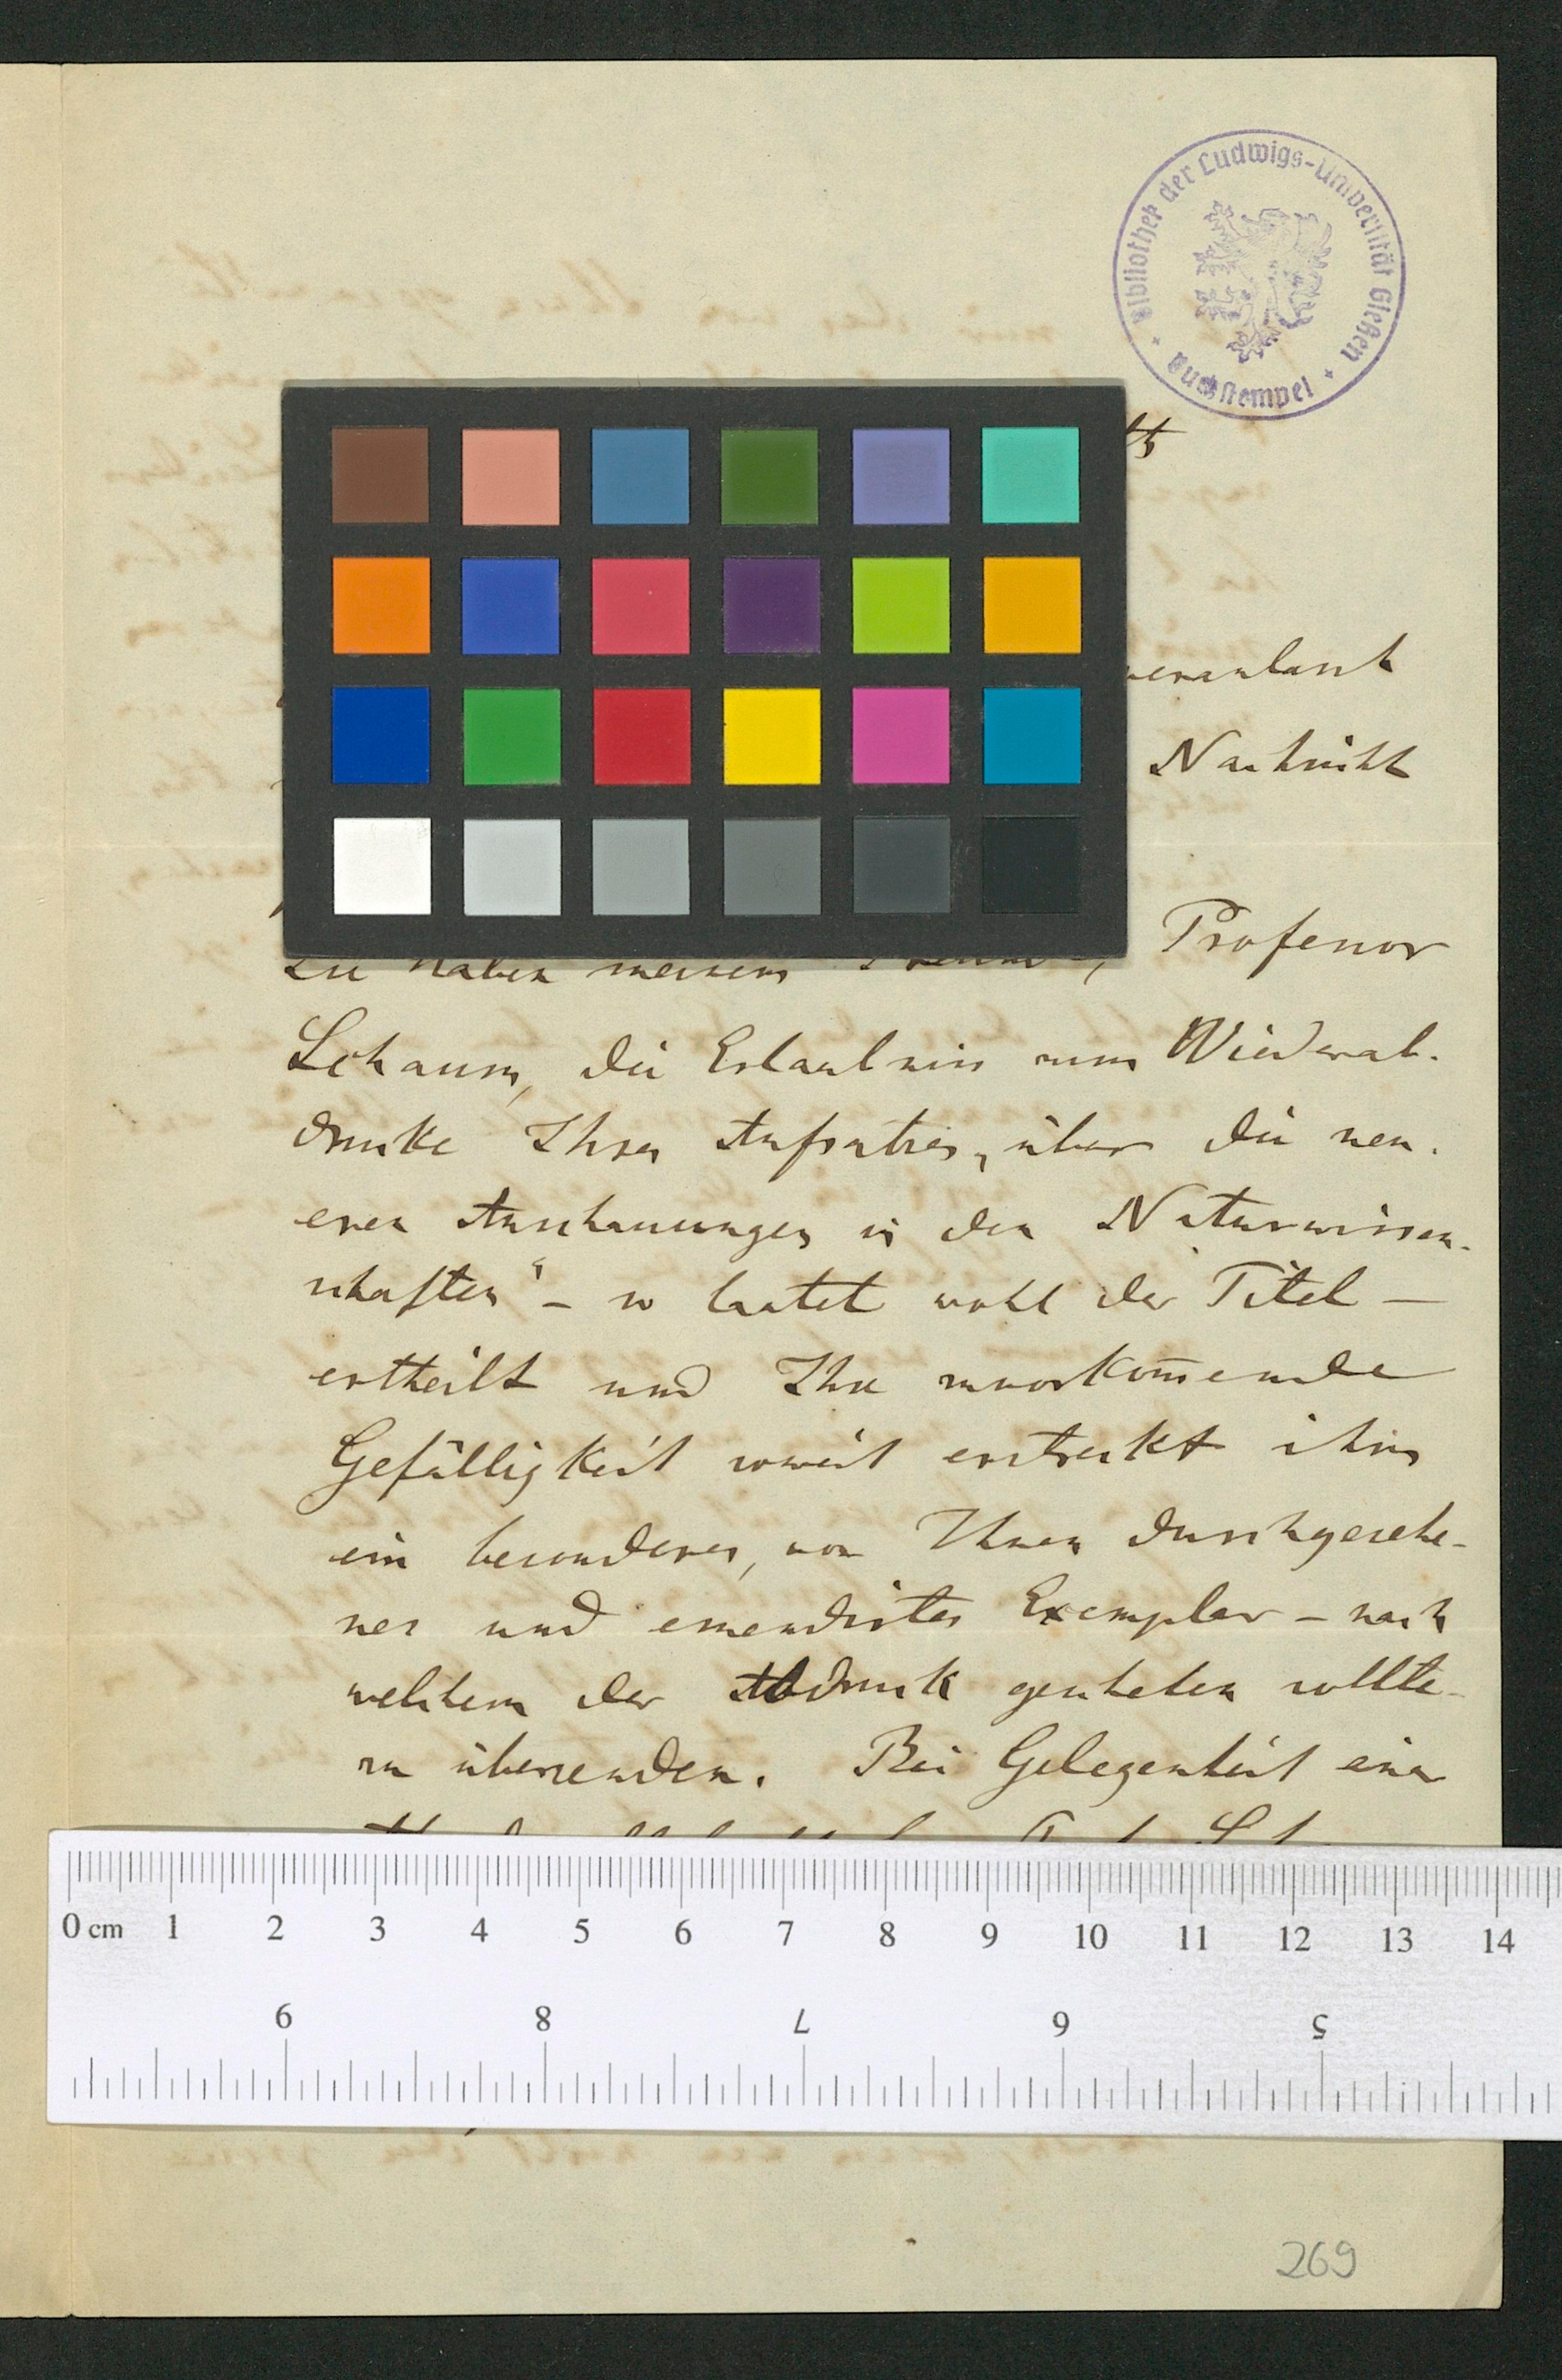 Bibliothek der Ludwigs-Universität Gießen
Buchstempel
veranlasst
Nachricht
zu haben meinem Freunde, Professor
Schaum, die Erlaubniss zum Wiederab-
drucke Ihres Aufsatzes „über die neu-
eren Anschauungen in den Naturwissen-
schaften“ – so lautet wohl der Titel –
ertheilt und Ihre zuvorkom̅ende
Gefälligkeit soweit erstreckt ihm
ein besonderes, von Ihnen durchgesehe-
nes und emendirtes Exemplar – nach
welchem der Abdruck geschehen sollte –
zu übersenden. Bei Gelegenheit einer
0 cm 1 2 3 4 5 6 7 8 9 10 11 12 13 14
9 8 7 6 5
269